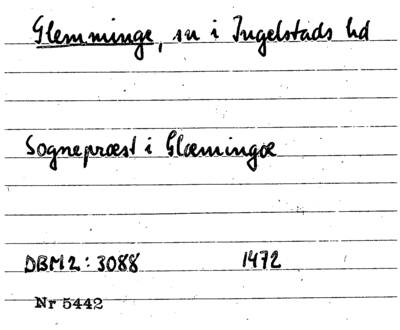 Glemminge, sn i Ingelstads hd
Sognepræst i Glæmingæ
DBM2: 3088 1472
Nr 5442